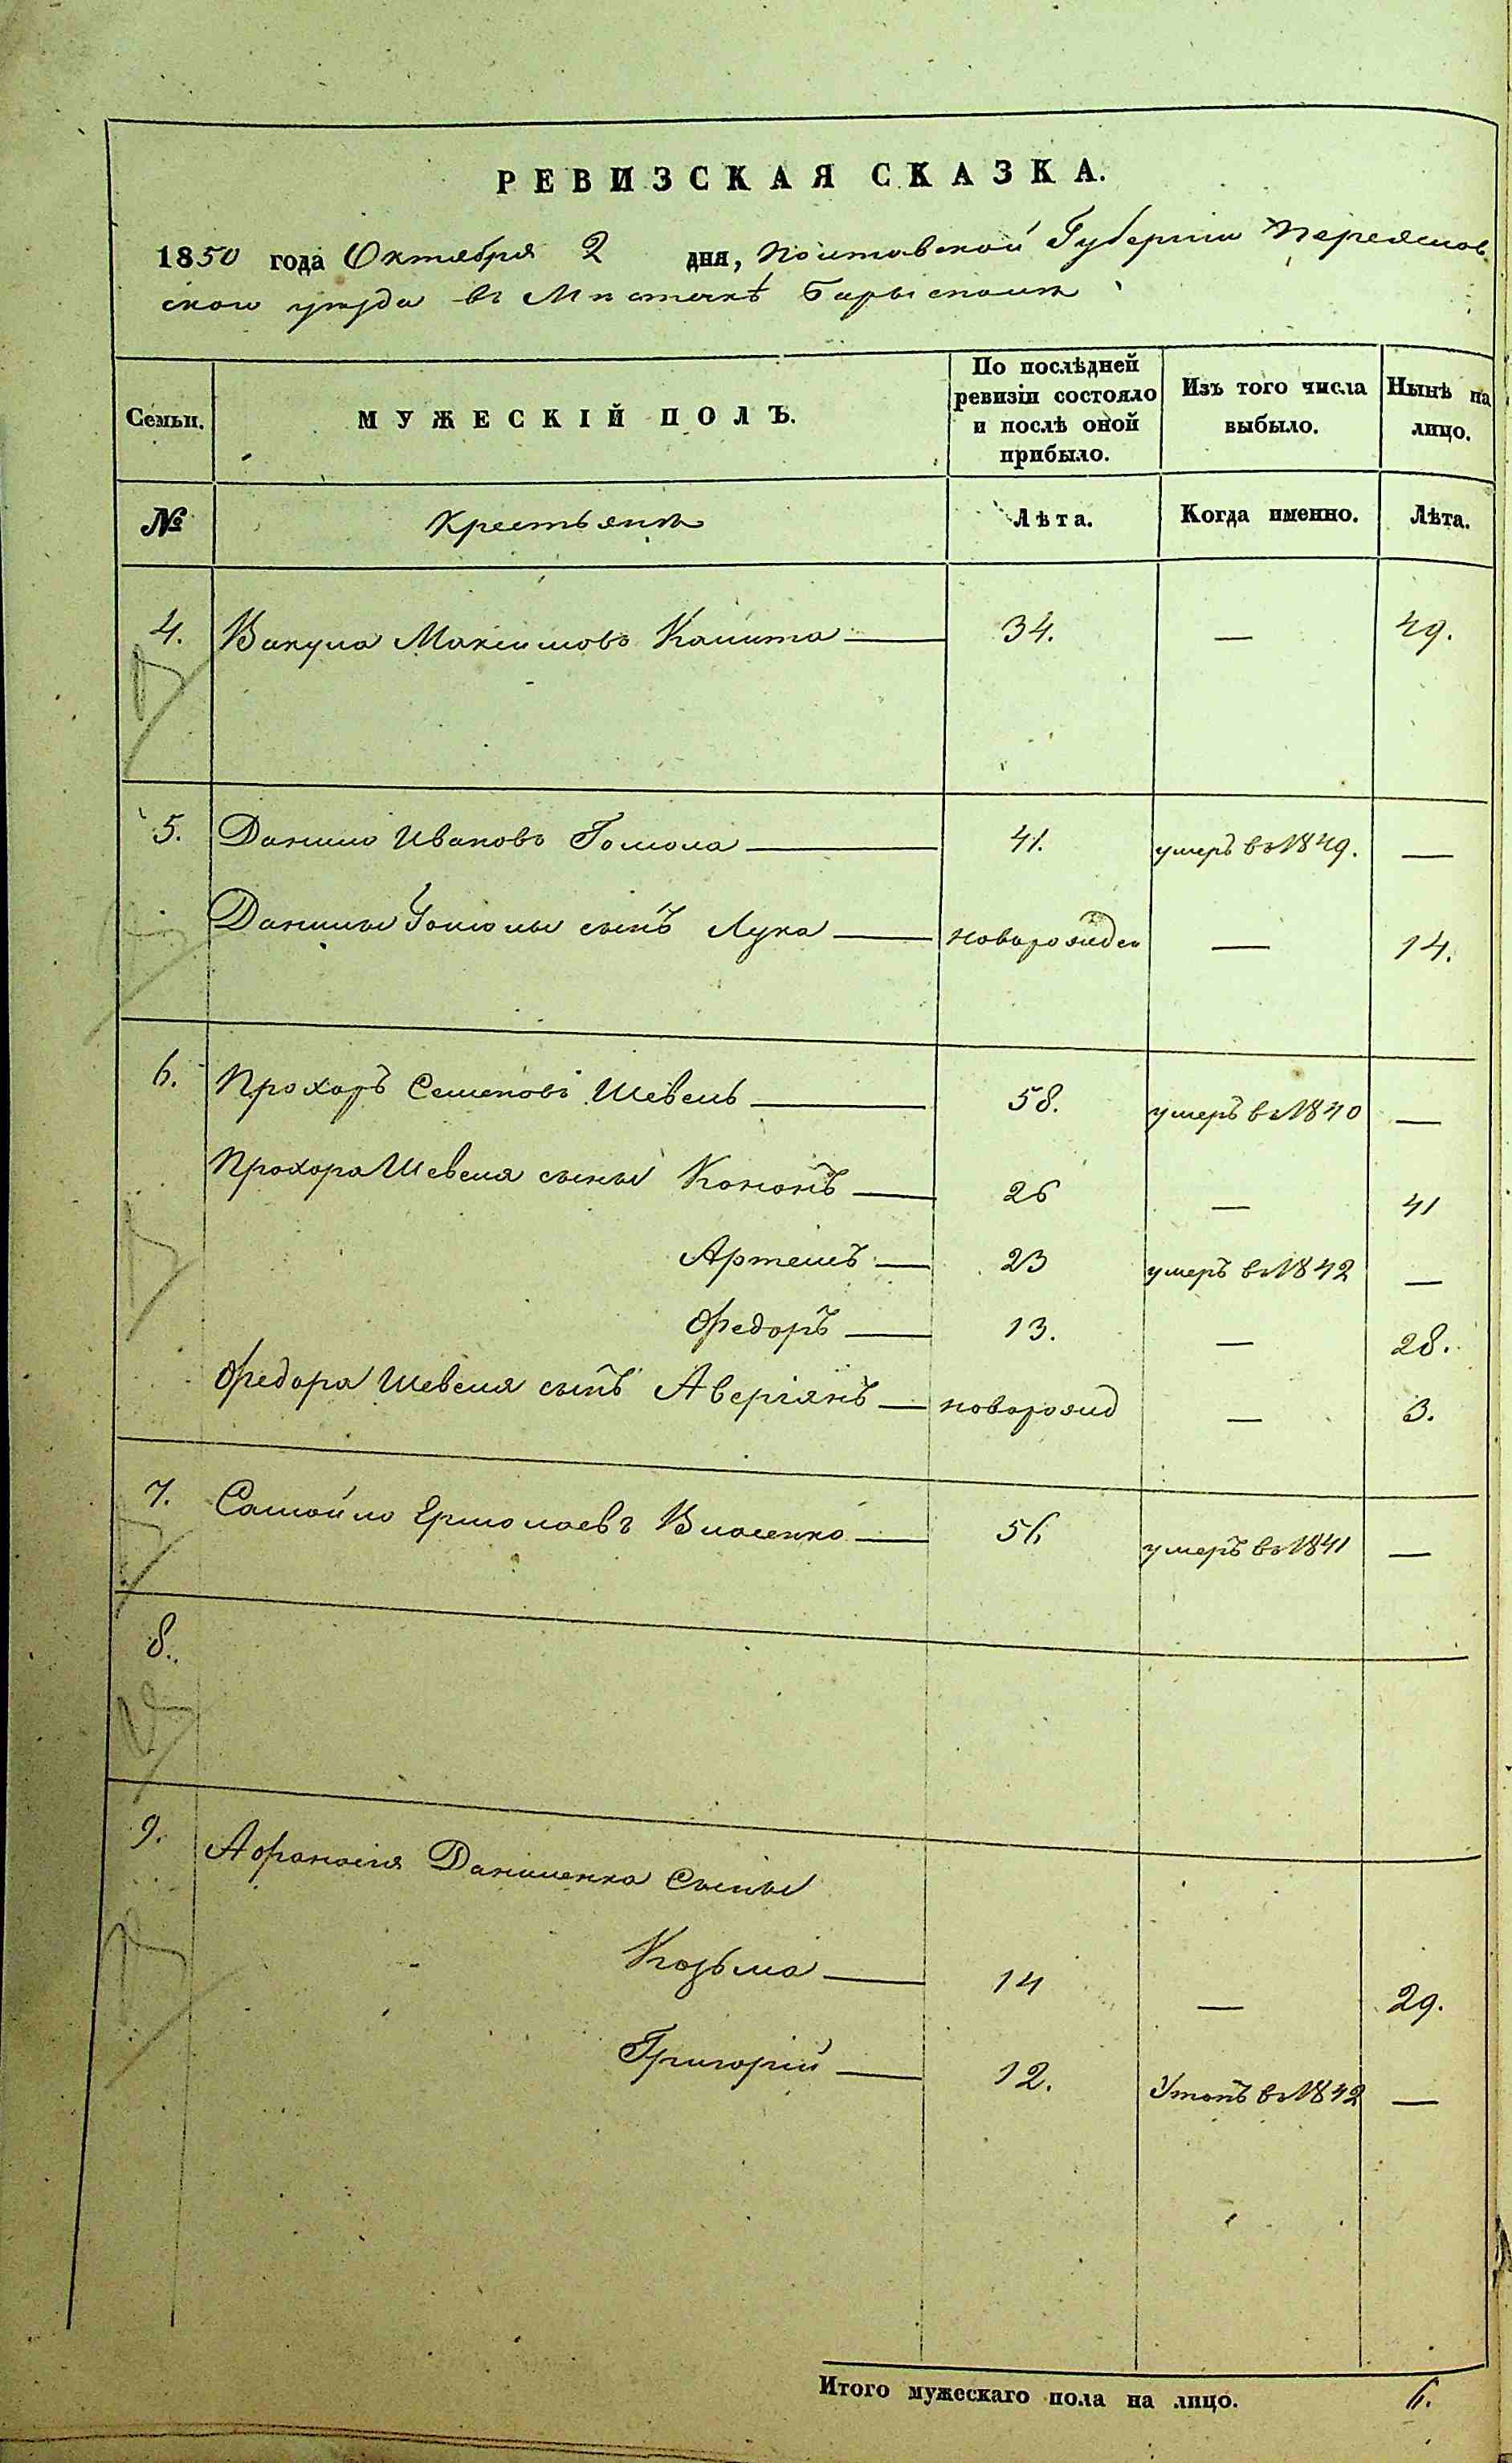 РЕВИЗСКАЯ СКАЗКА.
1850 года Октября 2 дня, Полтавской Губернии Переяслов
ского уезда въ Местечкѣ Барысполе
Семьи. МУЖЕСКІЙ ПОЛЪ. По послѣдней ревизіи состояло и послѣ оной прибыло. Изъ того числа выбыло. Нынѣ на лицо.
№ Крестьяне Лѣта. Когда именно. Лѣта.
4. Вакула Максимовъ Калита — 34. — 49.
5. Данило Ивановъ Гомола — 41. умеръ въ 1849. —
Данилы Гомолы сынъ Лука — новорожден — 14.
6. Прохоръ Семеновъ Шевель — 58. умеръ въ 1840 —
Прохора Шевеля сыны Кононъ — 26 — 41
Артемъ — 23 умеръ въ 1842 —
Федоръ — 13. — 28.
Федора Шевеля сынъ Аверіянъ — новорожд — 3.
7. Самойло Ермолаевъ Власенко — 56, умеръ въ 1841 —
8.
9. Афанасія Даниленка Сыны
Козьма — 14 — 29.
Григорій — 12. Утопъ въ 1842 —
Итого мужескаго пола на лицо. 6.